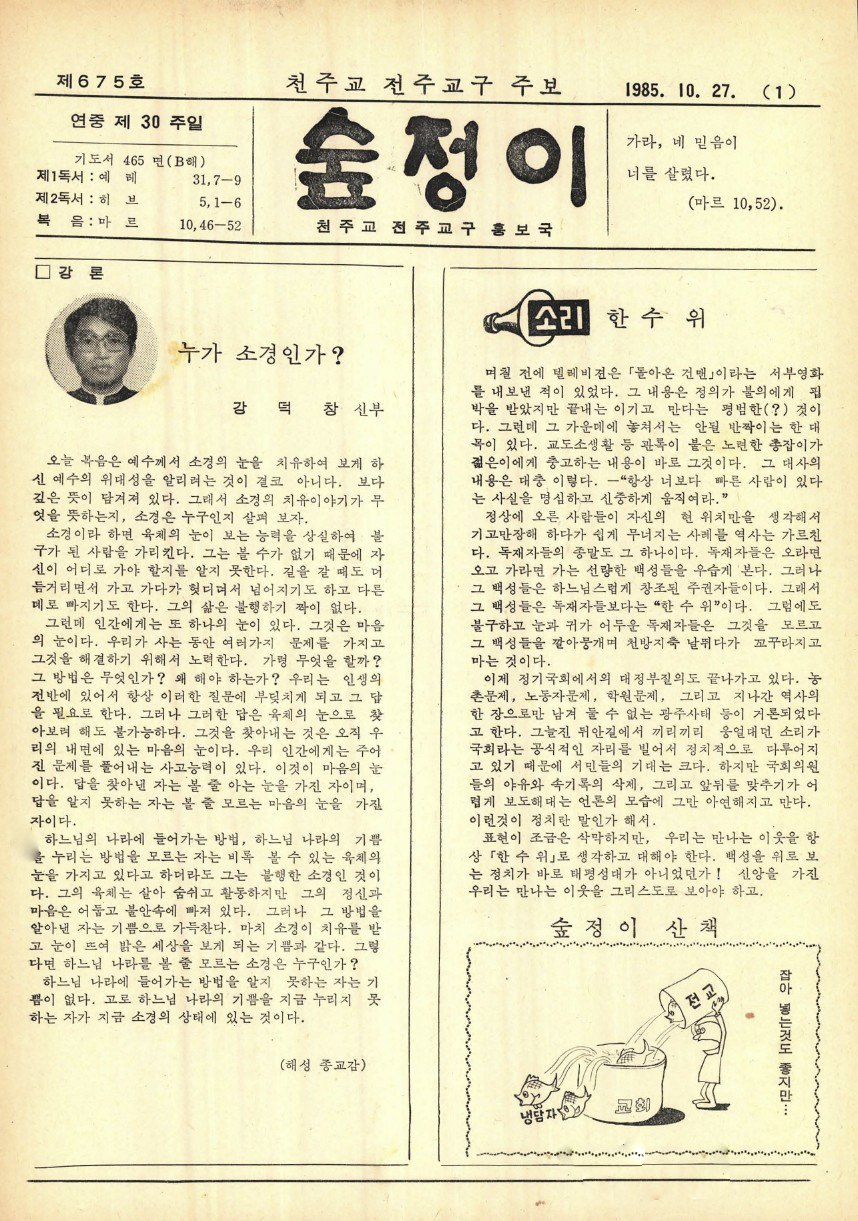 제675호
천주교 전주교구 주보
1985. 10. 27. (1)
연중 제 30 주일
기도서 465 면(B해)
제1독서 : 예 레 31,7—9
제2독서 : 히 브 5,1—6
복 음 : 마 르 10,46—52
숲정이
천주교 전주교구 홍보국
가라, 네 믿음이
너를 살렸다.
(마르 10,52).
□ 강 론
누가 소경인가?
강 덕 창 신부
오늘 복음은 예수께서 소경의 눈을 치유하여 보게 하
신 예수의 위대성을 알리려는 것이 결코 아니다. 보다
깊은 뜻이 담겨져 있다. 그래서 소경의 치유이야기가 무
엇을 뜻하는지, 소경은 누구인지 살펴 보자.
소경이라 하면 육체의 눈이 보는 능력을 상실하여 불
구가 된 사람을 가리킨다. 그는 볼 수가 없기 때문에 자
신이 어디로 가야 할지를 알지 못한다. 길을 갈 때도 더
듬거리면서 가고 가다가 헛디뎌서 넘어지기도 하고 다른
데로 빠지기도 한다. 그의 삶은 불행하기 짝이 없다.
그런데 인간에게는 또 하나의 눈이 있다. 그것은 마음
의 눈이다. 우리가 사는 동안 여러가지 문제를 가지고
그것을 해결하기 위해서 노력한다. 가령 무엇을 할까?
그 방법은 무엇인가? 왜 해야 하는가? 우리는 인생의
전반에 있어서 항상 이러한 질문에 부딪치게 되고 그 답
을 필요로 한다. 그러나 그러한 답은 육체의 눈으로 찾
아보려 해도 불가능하다. 그것을 찾아내는 것은 오직 우
리의 내면에 있는 마음의 눈이다. 우리 인간에게는 주어
진 문제를 풀어내는 사고능력이 있다. 이것이 마음의 눈
이다. 답을 찾아낸 자는 볼 줄 아는 눈을 가진 자이며,
답을 알지 못하는 자는 볼 줄 모르는 마음의 눈을 가진
자이다.
하느님의 나라에 들어가는 방법, 하느님 나라의 기쁨
을 누리는 방법을 모르는 자는 비록 볼 수 있는 육체의
눈을 가지고 있다고 하더라도 그는 불행한 소경인 것이
다. 그의 육체는 살아 숨쉬고 활동하지만 그의 정신과
마음은 어둡고 불안속에 빠져 있다. 그러나 그 방법을
알아낸 자는 기쁨으로 가득찬다. 마치 소경이 치유를 받
고 눈이 뜨여 밝은 세상을 보게 되는 기쁨과 같다. 그렇
다면 하느님 나라를 볼 줄 모르는 소경은 누구인가?
하느님 나라에 들어가는 방법을 알지 못하는 자는 기
쁨이 없다. 고로 하느님 나라의 기쁨을 지금 누리지 못
하는 자가 지금 소경의 상태에 있는 것이다.
(해성 종교감)
소리 한 수 위
며칠 전에 텔레비젼은 「돌아온 건맨」이라는 서부영화
를 내보낸 적이 있었다. 그 내용은 정의가 불의에게 핍
박을 받았지만 끝내는 이기고 만다는 평범한(?) 것이
다. 그런데 그 가운데에 놓쳐서는 안될 반짝이는 한 대
목이 있다. 교도소생활 등 관록이 붙은 노련한 총잡이가
젊은이에게 충고하는 내용이 바로 그것이다. 그 대사의
내용은 대충 이렇다. —“항상 너보다 빠른 사람이 있다
는 사실을 명심하고 신중하게 움직여라.”
정상에 오른 사람들이 자신의 현 위치만을 생각해서
기고만장해 하다가 쉽게 무너지는 사례를 역사는 가르친
다. 독재자들의 종말도 그 하나이다. 독재자들은 오라면
오고 가라면 가는 선량한 백성들을 우습게 본다. 그러나
그 백성들은 하느님스럽게 창조된 주권자들이다. 그래서
그 백성들은 독재자들보다는 “한 수 위”이다. 그럼에도
불구하고 눈과 귀가 어두운 독재자들은 그것을 모르고
그 백성들을 깔아뭉개며 천방지축 날뛰다가 꼬꾸라지고
마는 것이다.
이제 정기국회에서의 대정부질의도 끝나가고 있다. 농
촌문제, 노동자문제, 학원문제, 그리고 지나간 역사의
한 장으로만 남겨 둘 수 없는 광주사태 등이 거론되었다
고 한다. 그늘진 뒤안길에서 끼리끼리 웅얼대던 소리가
국회라는 공식적인 자리를 빌어서 정치적으로 다루어지
고 있기 때문에 서민들의 기대는 크다. 하지만 국회의원
들의 야유와 속기록의 삭제, 그리고 앞뒤를 맞추기가 어
렵게 보도해대는 언론의 모습에 그만 아연해지고 만다.
이런것이 정치란 말인가 해서.
표현이 조금은 삭막하지만, 우리는 만나는 이웃을 항
상 「한 수 위」로 생각하고 대해야 한다. 백성을 위로 보
는 정치가 바로 태평성대가 아니었던가! 신앙을 가진
우리는 만나는 이웃을 그리스도로 보아야 하고.
숲 정 이 산 책
잡아 넣는것도 좋지만…
전교
교회
냉담자